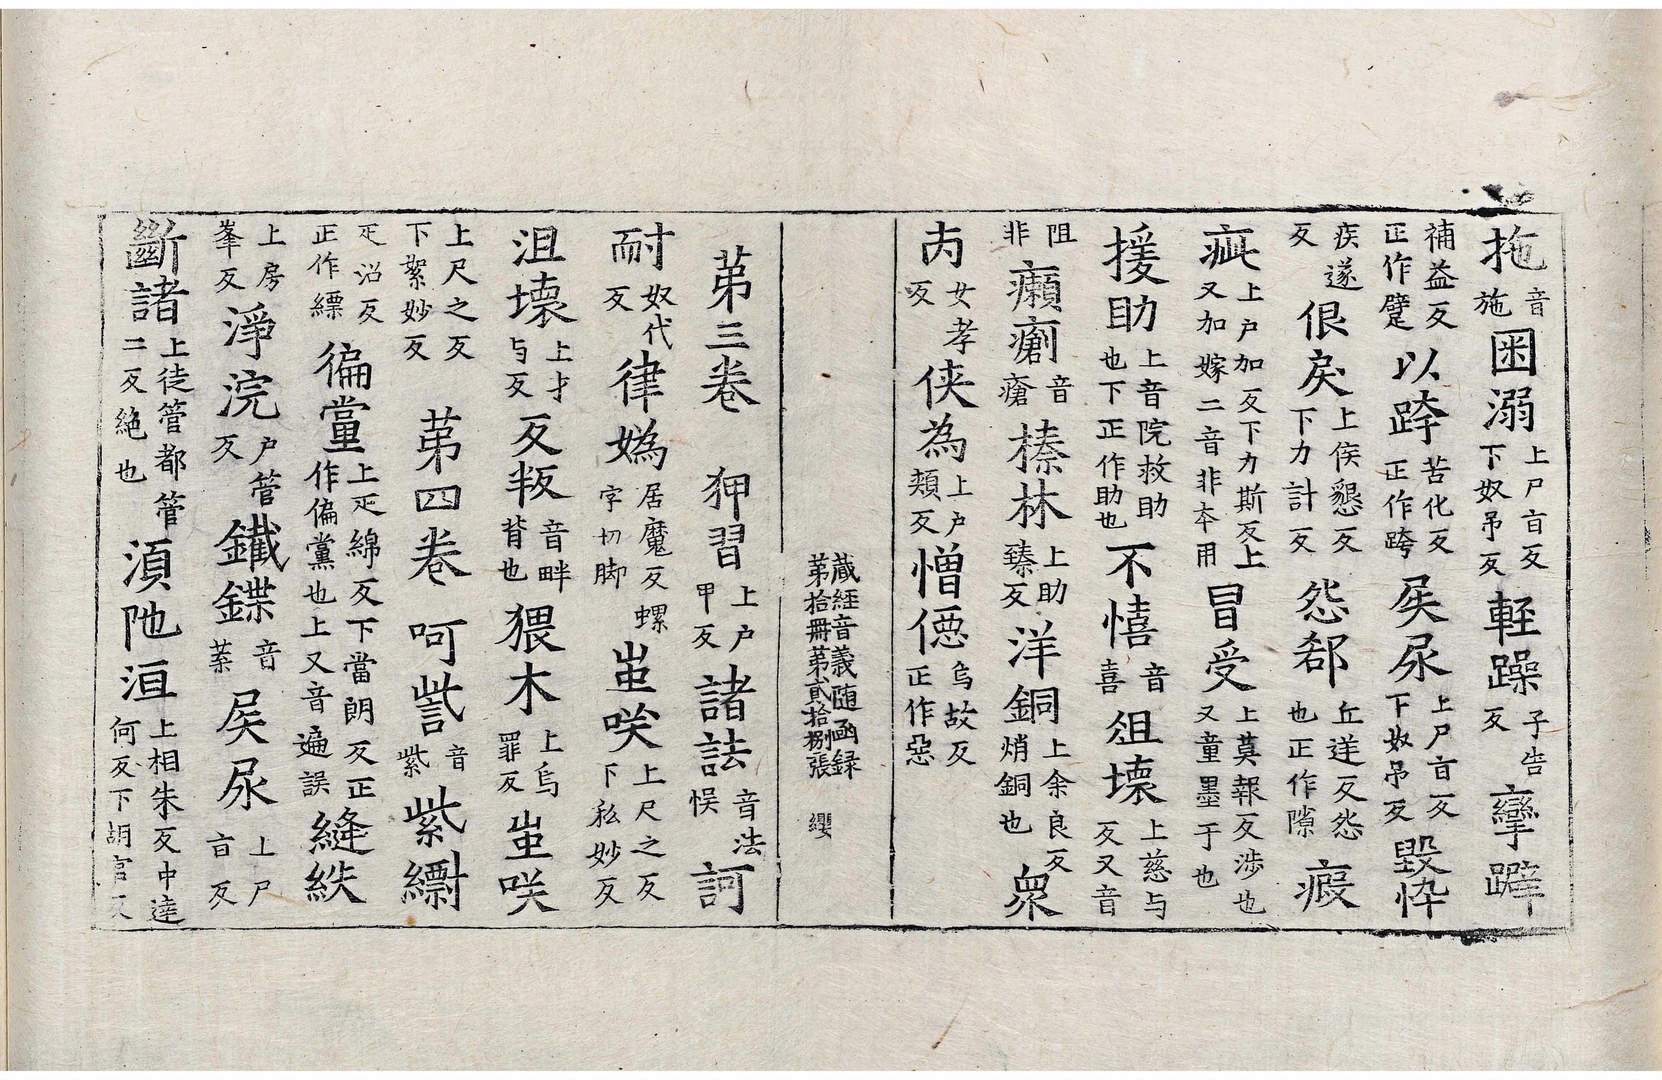 拖音施困溺上尸盲反下奴吊反輊躁子告反攣躃
補益反正作躄以跨苦化反正作跨㞋尿上尸盲反下奴吊反毀忰
疾遂反佷戾上侯懇反下力計反怨郄丘逆反怨也正作隙瘕
疵上户加反下力斯反上又加嫁二音非夲用冒受上莫報反涉也又童墨于也
援助上音院救助也下正作助也不憘音喜俎壊上慈与反又音
阻非癩㿂音瘡榛林上助臻反洋銅上余良反焇銅也衆
㐫女孝反俠為上户頬反憎僫烏故反正作惡
蔵経音義随函録第拾冊第貳拾捌張 纓
第三卷 狎習上户甲反諸詓音法悮訶
耐奴代反律媯居魔反螺字切脚蚩咲上尺之反下私妙反
沮壊上才与反反叛音畔背也猥木上烏罪反蚩咲
上尺之反下絮妙反 第四卷 呵訾音紫紫𦆯
疋沼反正作縹徧黨上疋綿反下當朗反正作偏黨也上又音遍誤縫紩
上房峯反淨浣户管反鐵鍱音葉㞋尿上尸盲反
斷諸上徒管都管二反絶也湏阤洹上相朱反中達何反下胡官反